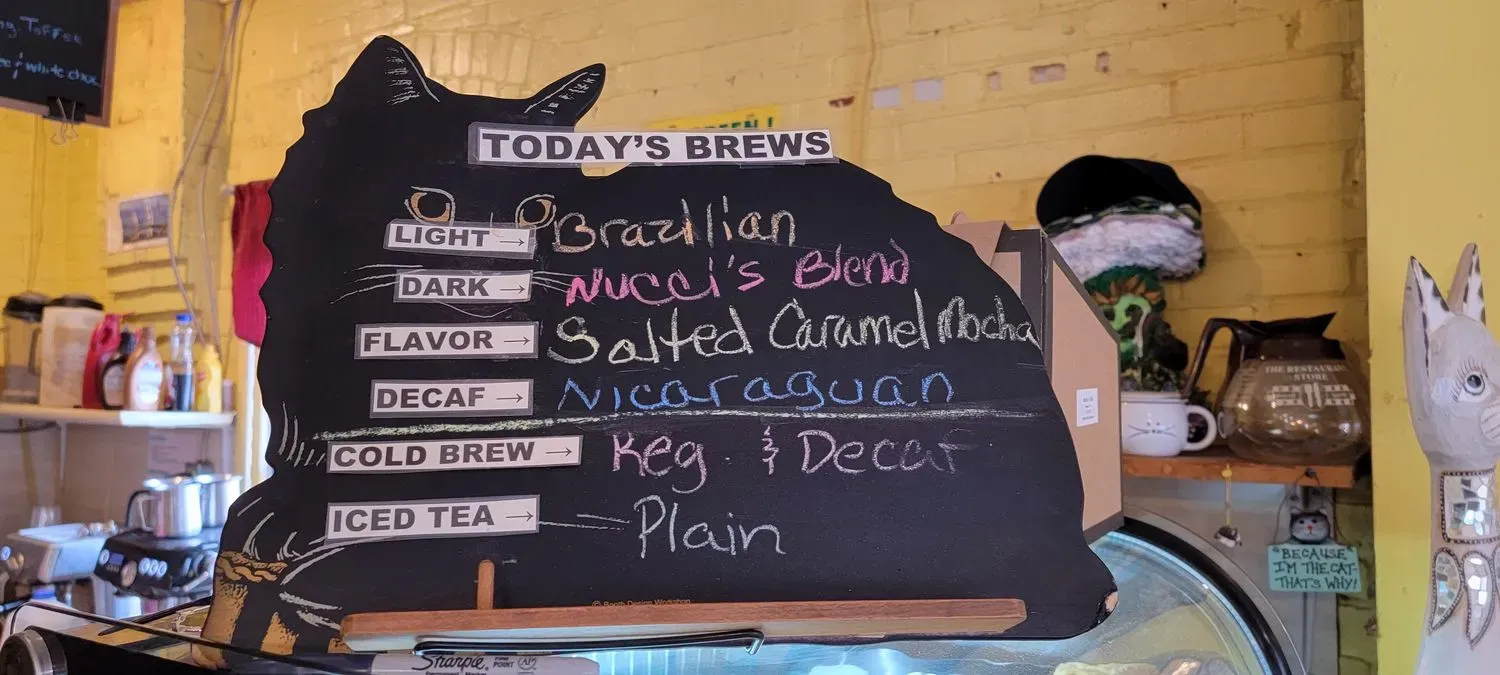 Toffee
white choc
TODAY'S BREWS
LIGHT → Brazillian
DARK → Nucci's Blend
FLAVOR → Salted Caramel Mocha
DECAF → Nicaraguan
COLD BREW → Reg. & Decaf
ICED TEA → Plain
© Booth Design Workshop
Sharpie FINE POINT AP
THE RESTAURANT
STORE
"BECAUSE
I'M THE CAT-
THAT'S WHY!